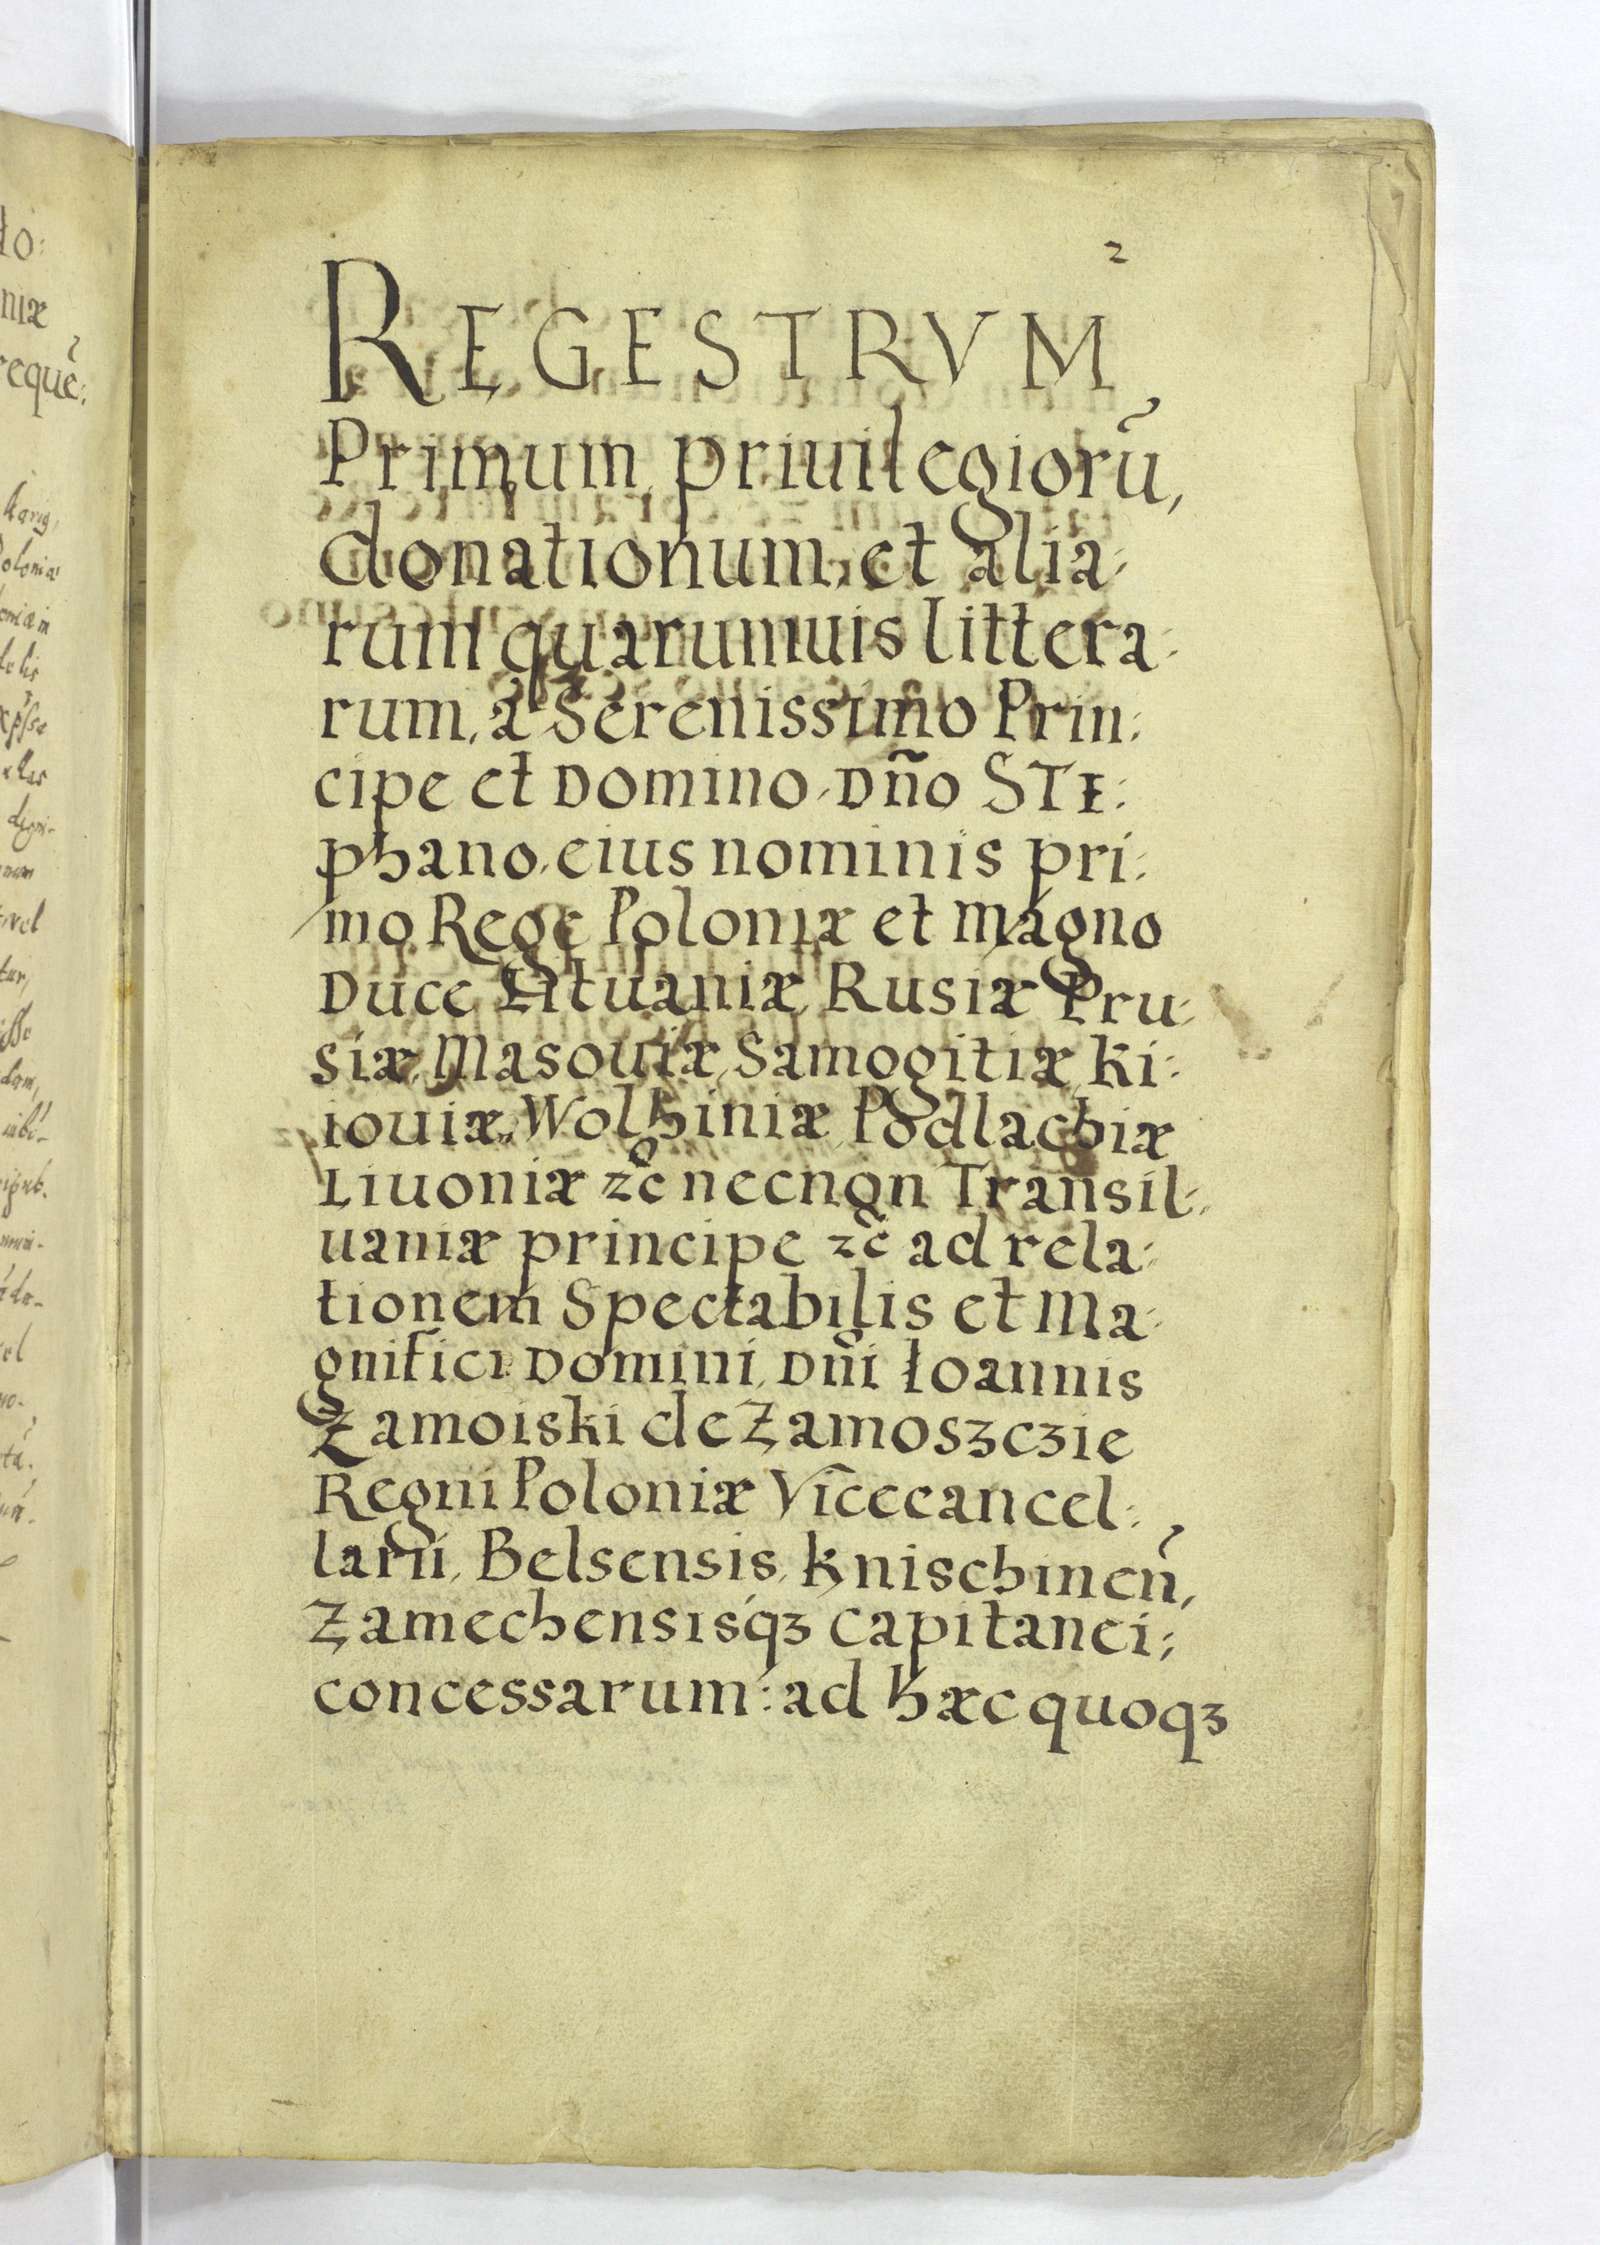 2
REGESTRVM
Primum, priuilegiorũ,
donationum, et alia:
rum quarumuis littera:
rum, à Serenissimo Prin:
cipe et Domino, Dño STE:
phano, eius nominis pri:
mo Rege Poloniæ et Magno
Duce Lituaniæ, Rusiæ Pru:
siæ, Masouiæ, Samogitiæ, Ki:
iouiæ, Wolhiniæ, Podlachiæ
Liuoniæ zc̃ necnon Transil:
uaniæ principe zc̃ ad rela:
tionem Spectabilis et Ma:
gnifici Domini, Dñi Ioannis
Zamoiski de Zamosʒcʒie
Regni Poloniæ Vicecancel:
larii, Belsensis, Knischineñ,
Zamechensisqʒ capitanei;
concessarum: ad hæc quoqʒ